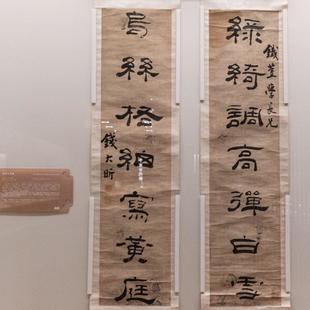 綠綺調高彈白雪
鐵葊學長兄
烏絲格細寫黃庭
錢大昕